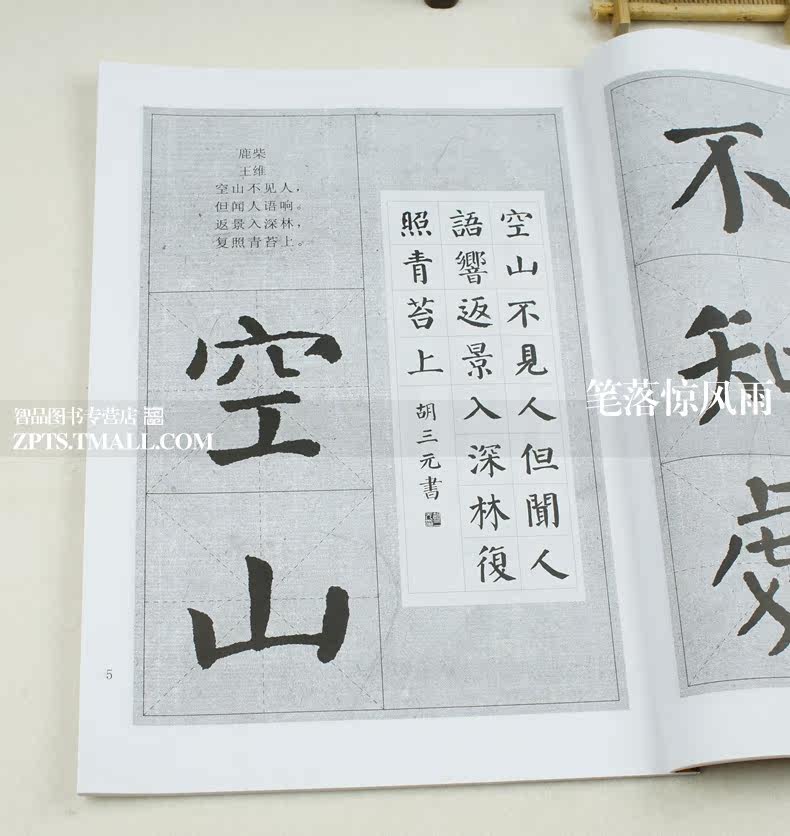 鹿柴
王维
空山不见人，
但闻人语响。
返景入深林，
复照青苔上。
空
山
空山不見人但聞人
語響返景入深林復
照青苔上
胡三元書
不
知
处
5
智品图书专营店
ZPTS.TMALL.COM
笔落惊风雨